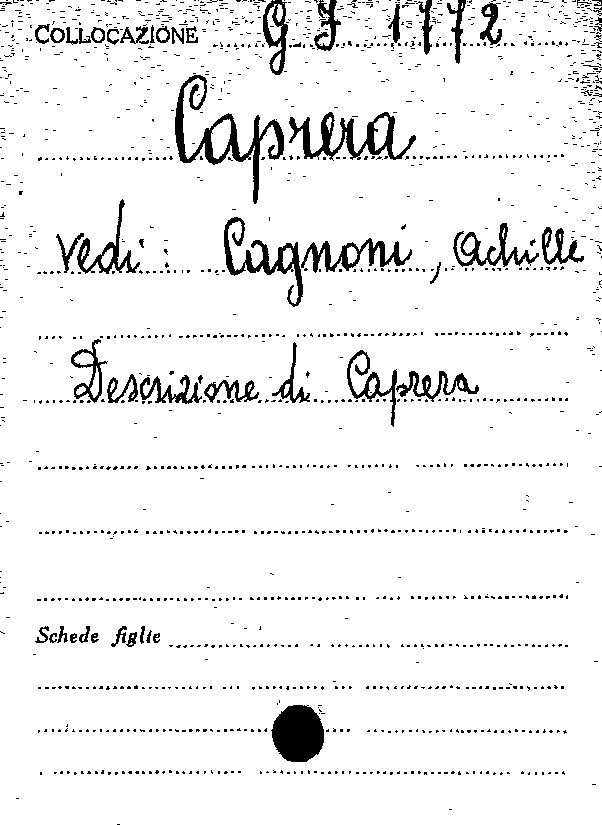 COLLOCAZIONE G J 1772
Caprera
vedi: Cagnoni, Achille
Descrizione di Caprera
Schede figlie